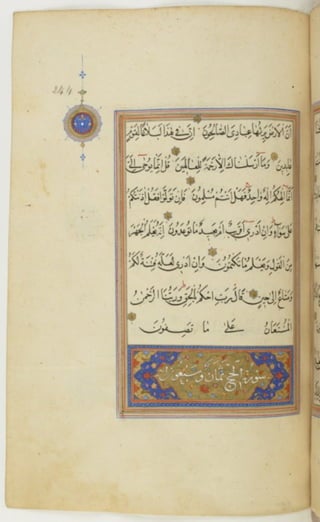 أن الأرض يرثها عبادي الصالحون إن في هذا لبلاغا لقوم
عابدين وما أرسلناك إلا رحمة للعالمين قل إنما يوحى إلي
أنما إلهكم إله واحد فهل أنتم مسلمون فإن تولوا فقل آذنتكم
على سواء وإن أدري أقريب أم بعيد ما توعدون إنه يعلم الجهر
من القول ويعلم ما تكتمون وإن أدري لعله فتنة لكم
ومتاع إلى حين قال رب احكم بالحق وربنا الرحمن
المستعان على ما تصفون
سورة الحج ثمان وسبعون